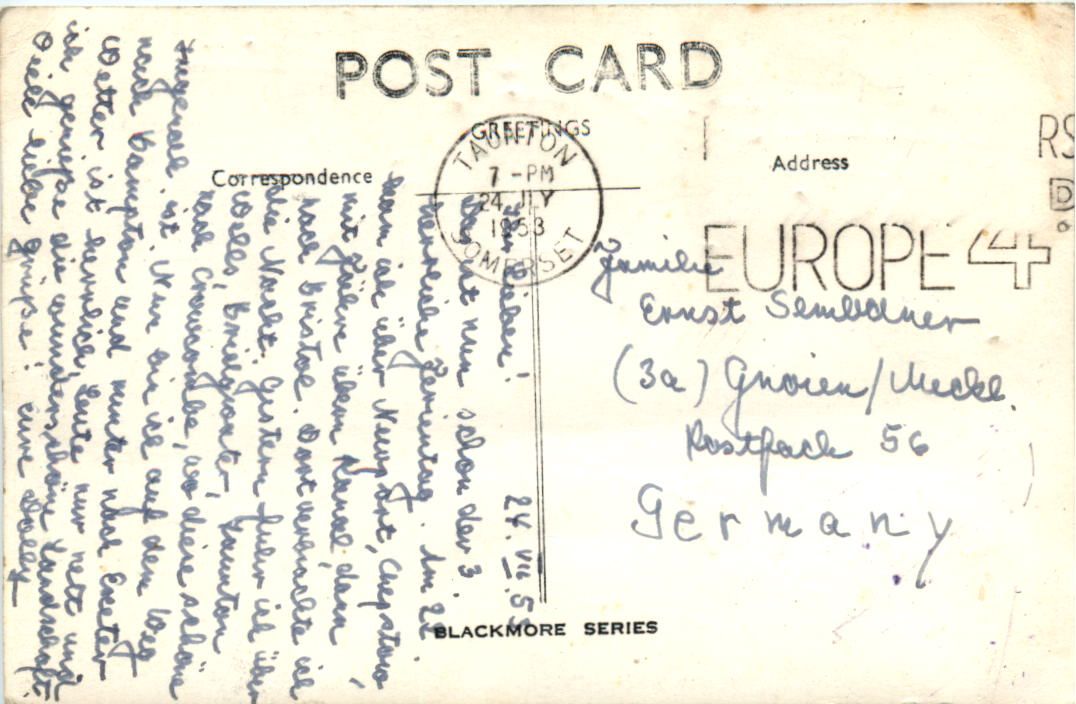 POST CARD
GREETINGS
Correspondence
Address
TAUNTON
7 - PM
24 JLY
1953
SOMERSET
EUROPE 4
BLACKMORE SERIES
Familie
Ernst Sembdner
(3a) Gnoien / Meckl.
Postfach 56
Germany
24. VII. 53
Ihr Lieben!
nun schon der 3
Ferientag. Am 22
kam ich über Newport, Chepstow
mit Fähre übern Kanal, dann
nach Bristol. Dort verbrachte ich
die Nacht. Gestern fuhr ich über
Wells, Bridgwater, Taunton
nach Crowcombe, wo diese schöne
Jugendh. ist. Nun bin ich auf dem Weg
nach Bampton und runter nach Exeter
Wetter ist herrlich, Leute nur nett und
ich genieße die wunderschöne Landschaft.
Viele liebe Grüße! Eure